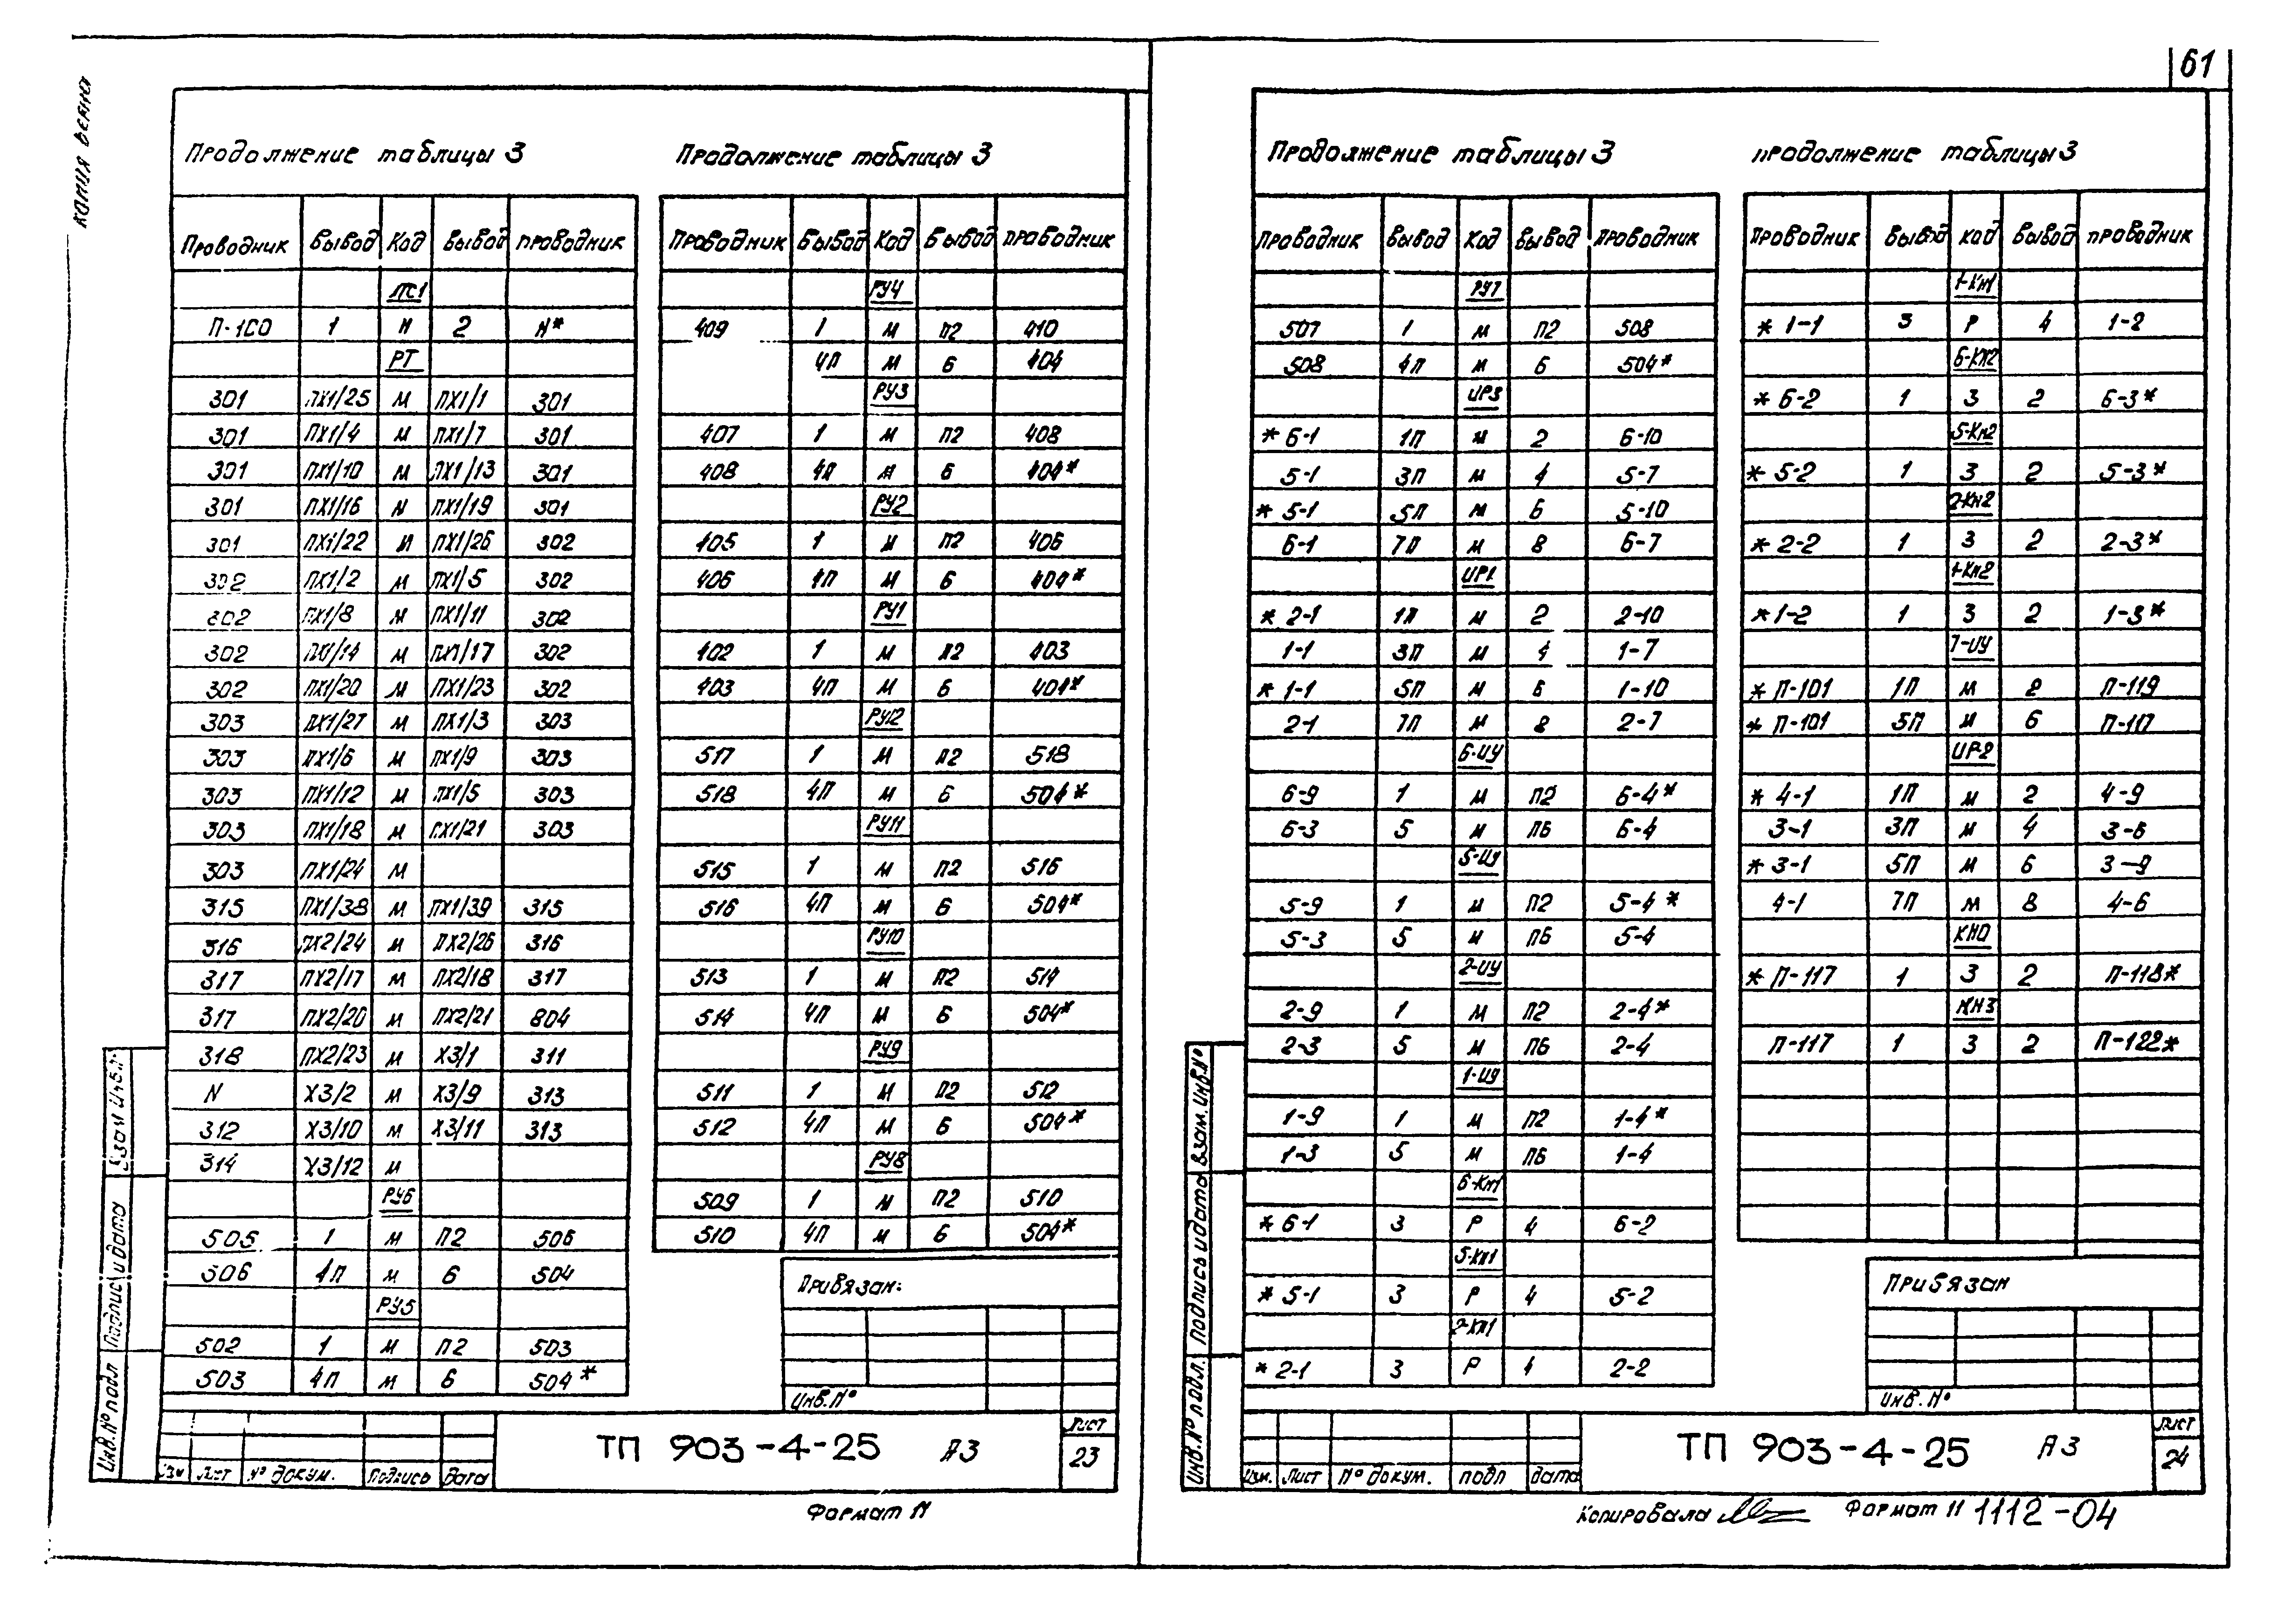 61
КОПИЯ ВЕРНА
Продолжение таблицы 3
Проводник Вывод Код Вывод Проводник
ЛС1
П-100 1 М 2 N*
РТ
301 ПХ1/25 М ПХ1/1 301
301 ПХ1/4 М ПХ1/7 301
301 ПХ1/10 М ПХ1/13 301
301 ПХ1/16 М ПХ1/19 301
301 ПХ1/22 М ПХ1/26 302
302 ПХ1/2 М ПХ1/5 302
302 ПХ1/8 М ПХ1/11 302
302 ПХ1/14 М ПХ1/17 302
302 ПХ1/20 М ПХ1/23 302
303 ПХ1/27 М ПХ1/3 303
303 ПХ1/6 М ПХ1/9 303
303 ПХ1/12 М ПХ1/5 303
303 ПХ1/18 М ПХ1/21 303
303 ПХ1/24 М
315 ПХ1/38 М ПХ1/39 315
316 ПХ2/24 М ПХ2/26 316
317 ПХ2/17 М ПХ2/18 317
317 ПХ2/20 М ПХ2/21 804
318 ПХ2/23 М Х3/1 311
N Х3/2 М Х3/9 313
312 Х3/10 М Х3/11 313
314 Х3/12 М
РУ6
505 1 М П2 506
506 4П М 6 504
РУ5
502 1 М П2 503
503 4П М 6 504*
Продолжение таблицы 3
Проводник Вывод Код Вывод Проводник
РУ4
409 1 М П2 410
4П М 6 404
РУ3
407 1 М П2 408
408 4П М 6 404*
РУ2
405 1 М П2 406
406 4П М 6 404*
РУ1
402 1 М П2 403
403 4П М 6 404*
РУ12
517 1 М П2 518
518 4П М 6 504*
РУ11
515 1 М П2 516
516 4П М 6 504*
РУ10
513 1 М П2 514
514 4П М 6 504*
РУ9
511 1 М П2 512
512 4П М 6 504*
РУ8
509 1 М П2 510
510 4П М 6 504*
Привязан:
Инв.№
Взам инв.№
Подпись и дата
Инв.№ подл
Изм Лист № докум. Подпись Дата
ТП 903-4-25 А3
Лист
23
Формат 11
Продолжение таблицы 3
Проводник Вывод Код Вывод Проводник
РУ7
507 1 М П2 508
508 4П М 6 504*
ИР3
*6-1 1П М 2 6-10
5-1 3П М 4 5-7
*5-1 5П М 6 5-10
6-1 7П М 8 6-7
ИР1
*2-1 1П М 2 2-10
1-1 3П М 4 1-7
*1-1 5П М 6 1-10
2-1 7П М 8 2-7
6-ИУ
6-9 1 М П2 6-4*
6-3 5 М П6 6-4
5-ИУ
5-9 1 М П2 5-4*
5-3 5 М П6 5-4
2-ИУ
2-9 1 М П2 2-4*
2-3 5 М П6 2-4
1-ИУ
1-9 1 М П2 1-4*
1-3 5 М П6 1-4
6-Кн1
*6-1 3 Р 4 6-2
5-Кн1
*5-1 3 Р 4 5-2
2-Кн1
*2-1 3 Р 4 2-2
Продолжение таблицы 3
Проводник Вывод Код Вывод Проводник
1-Кн1
*1-1 3 Р 4 1-2
6-Кн2
*6-2 1 З 2 6-3*
5-Кн2
*5-2 1 З 2 5-3*
2-Кн2
*2-2 1 З 2 2-3*
1-Кн2
*1-2 1 З 2 1-3*
7-ИУ
*П-101 1П М 2 П-119
*П-101 5П М 6 П-117
ИР2
*4-1 1П М 2 4-9
3-1 3П М 4 3-6
*3-1 5П М 6 3-9
4-1 7П М 8 4-6
КН0
*П-117 1 З 2 П-118*
КН3
П-117 1 З 2 П-122*
Привязан
Инв.№
Взам. инв.№
Подпись и дата
Инв.№ подл.
Изм. Лист № докум. подп дата
ТП 903-4-25 А3
Лист
24
Копировала
Формат 11 1112-04